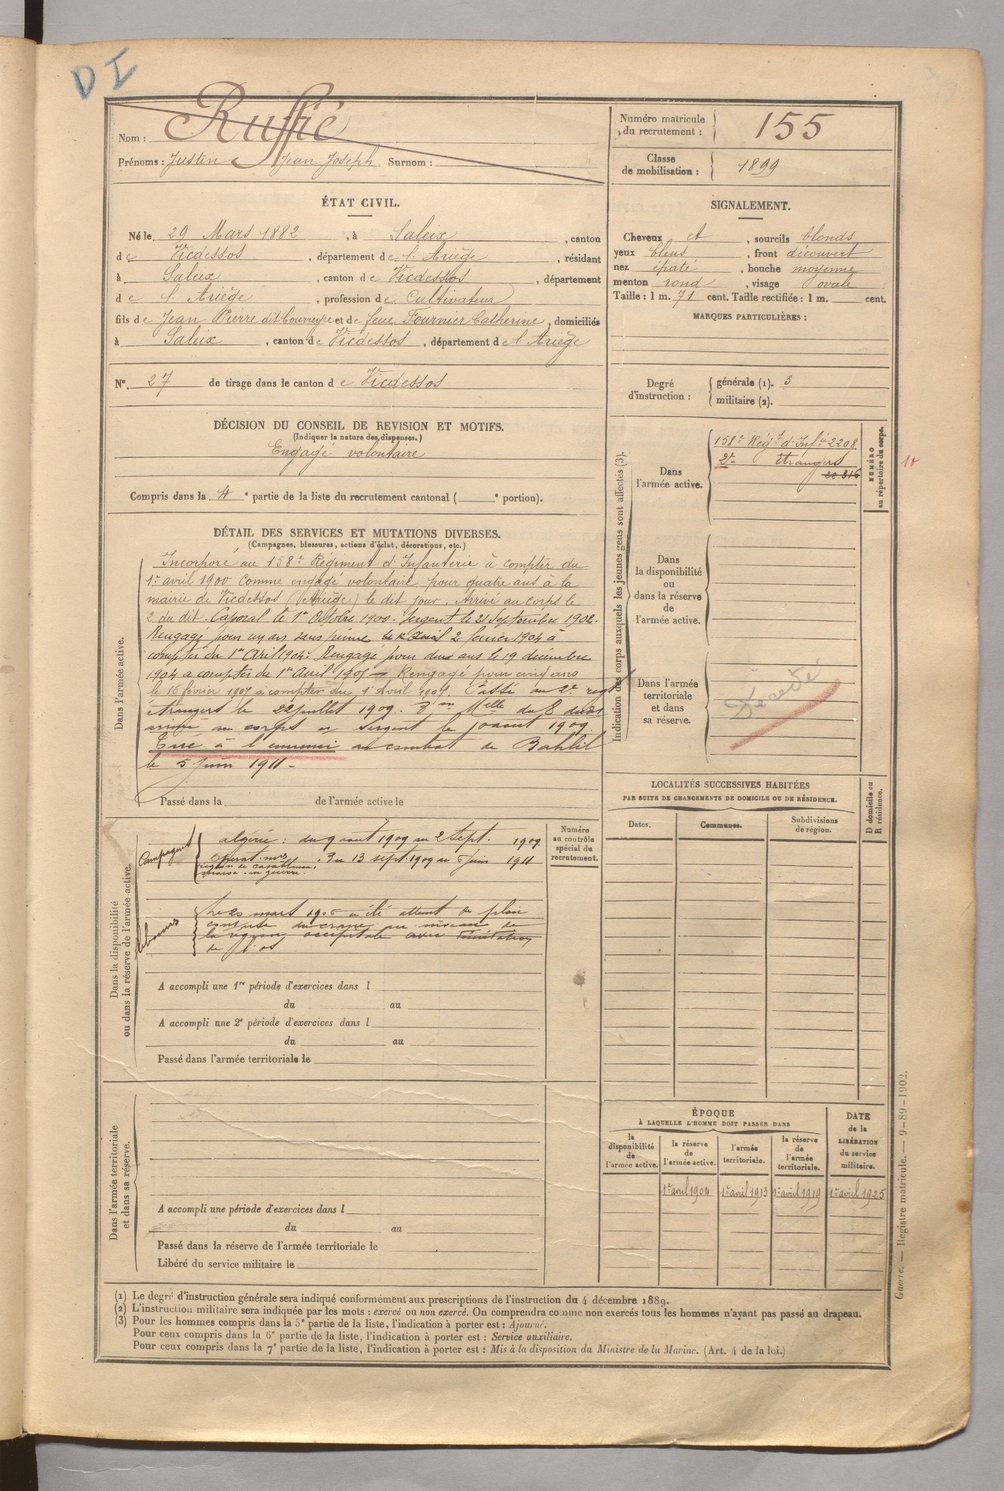 DI
Nom : Ruffié
Prénoms : Justin Jean Joseph Surnom :
Numéro matricule du recrutement : 155
Classe de mobilisation : 1899
ÉTAT CIVIL.
Né le 29 Mars 1882, à Saleix, canton
de Vicdessos, département de l'Ariège, résidant
à Saleix, canton de Vicdessos, département
de l'Ariège, profession de Cultivateur
fils de Jean Pierre dit et de feue Fournier Catherine, domiciliés
à Saleix, canton de Vicdessos, département de l'Ariège
N° 27 de tirage dans le canton de Vicdessos
SIGNALEMENT.
Cheveux et, sourcils blonds
yeux bleus, front découvert
nez épaté, bouche moyenne
menton rond, visage ovale
Taille : 1 m. 71 cent. Taille rectifiée : 1 m. cent.
MARQUES PARTICULIÈRES :
Degré d'instruction : générale (1). 3
militaire (2).
DÉCISION DU CONSEIL DE REVISION ET MOTIFS.
(Indiquer la nature des dispenses.)
Engagé volontaire
Compris dans la 4e partie de la liste du recrutement cantonal ( e portion).
DÉTAIL DES SERVICES ET MUTATIONS DIVERSES.
(Campagnes, blessures, actions d'éclat, décorations, etc.)
Dans l'armée active.
Incorporé au 158e Régiment d'Infanterie à compter du
1er avril 1900 comme engagé volontaire pour quatre ans à la
mairie de Vicdessos (Ariège) le dit jour. Arrivé au corps le
2 du dit. Caporal le 1er Octobre 1900. Sergent le 21 Septembre 1902.
Rengagé pour un an sans prime le 2 février 1904 à
compter du 1er Avril 1904. Rengagé pour deux ans le 19 décembre
1904 à compter du 1er Avril 1905 - Rengagé pour cinq ans
le 16 février 1907 à compter du 1er Avril 1907. Passé au 2e regt
étrangers le 22 juillet 1909.
arrivé au corps et sergent le 10 aout 1909
Tué à l'ennemi au combat de Bahlil
le 5 juin 1911 -
Passé dans la de l'armée active le
Indication des corps auxquels les jeunes gens sont affectés (3).
Dans l'armée active.
158e Régt d'Infie 2208
2e étrangers
NUMÉRO au répertoire du corps.
10
Dans la disponibilité ou dans la réserve de l'armée active.
Dans l'armée territoriale et dans sa réserve.
Décédé
LOCALITÉS SUCCESSIVES HABITÉES
PAR SUITE DE CHANGEMENTS DE DOMICILE OU DE RÉSIDENCE.
Dates. Communes. Subdivisions de région.
D domicile ou R résidence.
Dans la disponibilité ou dans la réserve de l'armée active.
Numéro au contrôle spécial du recrutement.
Campagnes
algérie : du 9 aout 1909 au 2 Sept. 1909
région de Casablanca. Du 13 sept. 1909 au 5 juin 1911
en guerre.
Blessures
Le 20 mars 1905 a été atteint de plaie
contuse du crane au niveau de
la région occipitale avec
A accompli une 1re période d'exercices dans l
du au
A accompli une 2e période d'exercices dans l
du au
Passé dans l'armée territoriale le
Dans l'armée territoriale et dans sa réserve.
A accompli une période d'exercices dans l
du au
Passé dans la réserve de l'armée territoriale le
Libéré du service militaire le
ÉPOQUE
À LAQUELLE L'HOMME DOIT PASSER DANS
la disponibilité de l'armée active.
la réserve de l'armée active.
l'armée territoriale.
la réserve de l'armée territoriale.
DATE de la LIBÉRATION du service militaire.
1er avril 1904 1er avril 1913 1er avril 1919 1er avril 1925
Guerre. — Registre matricule. — 9-89-1902.
(1) Le degré d'instruction générale sera indiqué conformément aux prescriptions de l'instruction du 4 décembre 1889.
(2) L'instruction militaire sera indiquée par les mots : exercé ou non exercé. On comprendra comme non exercés tous les hommes n'ayant pas passé au drapeau.
(3) Pour les hommes compris dans la 5e partie de la liste, l'indication à porter est : Ajourné.
Pour ceux compris dans la 6e partie de la liste, l'indication à porter est : Service auxiliaire.
Pour ceux compris dans la 7e partie de la liste, l'indication à porter est : Mis à la disposition du Ministre de la Marine. (Art. 4 de la loi.)